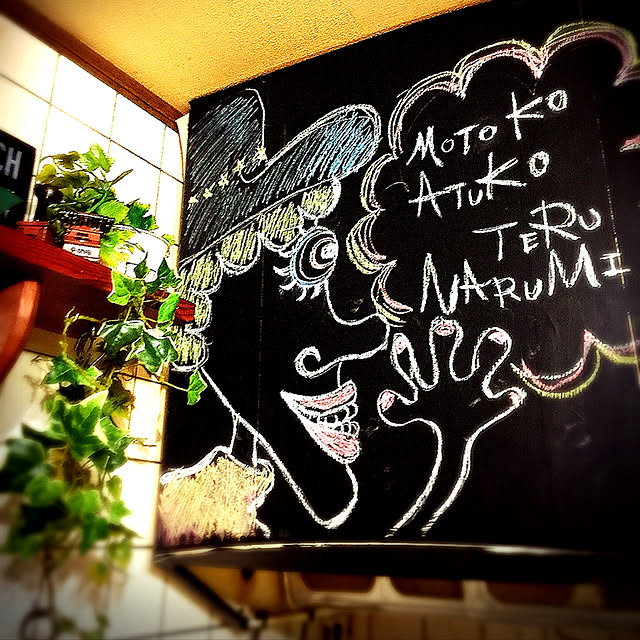 CH
MOTOKO
ATUKO
TERU
NARUMI